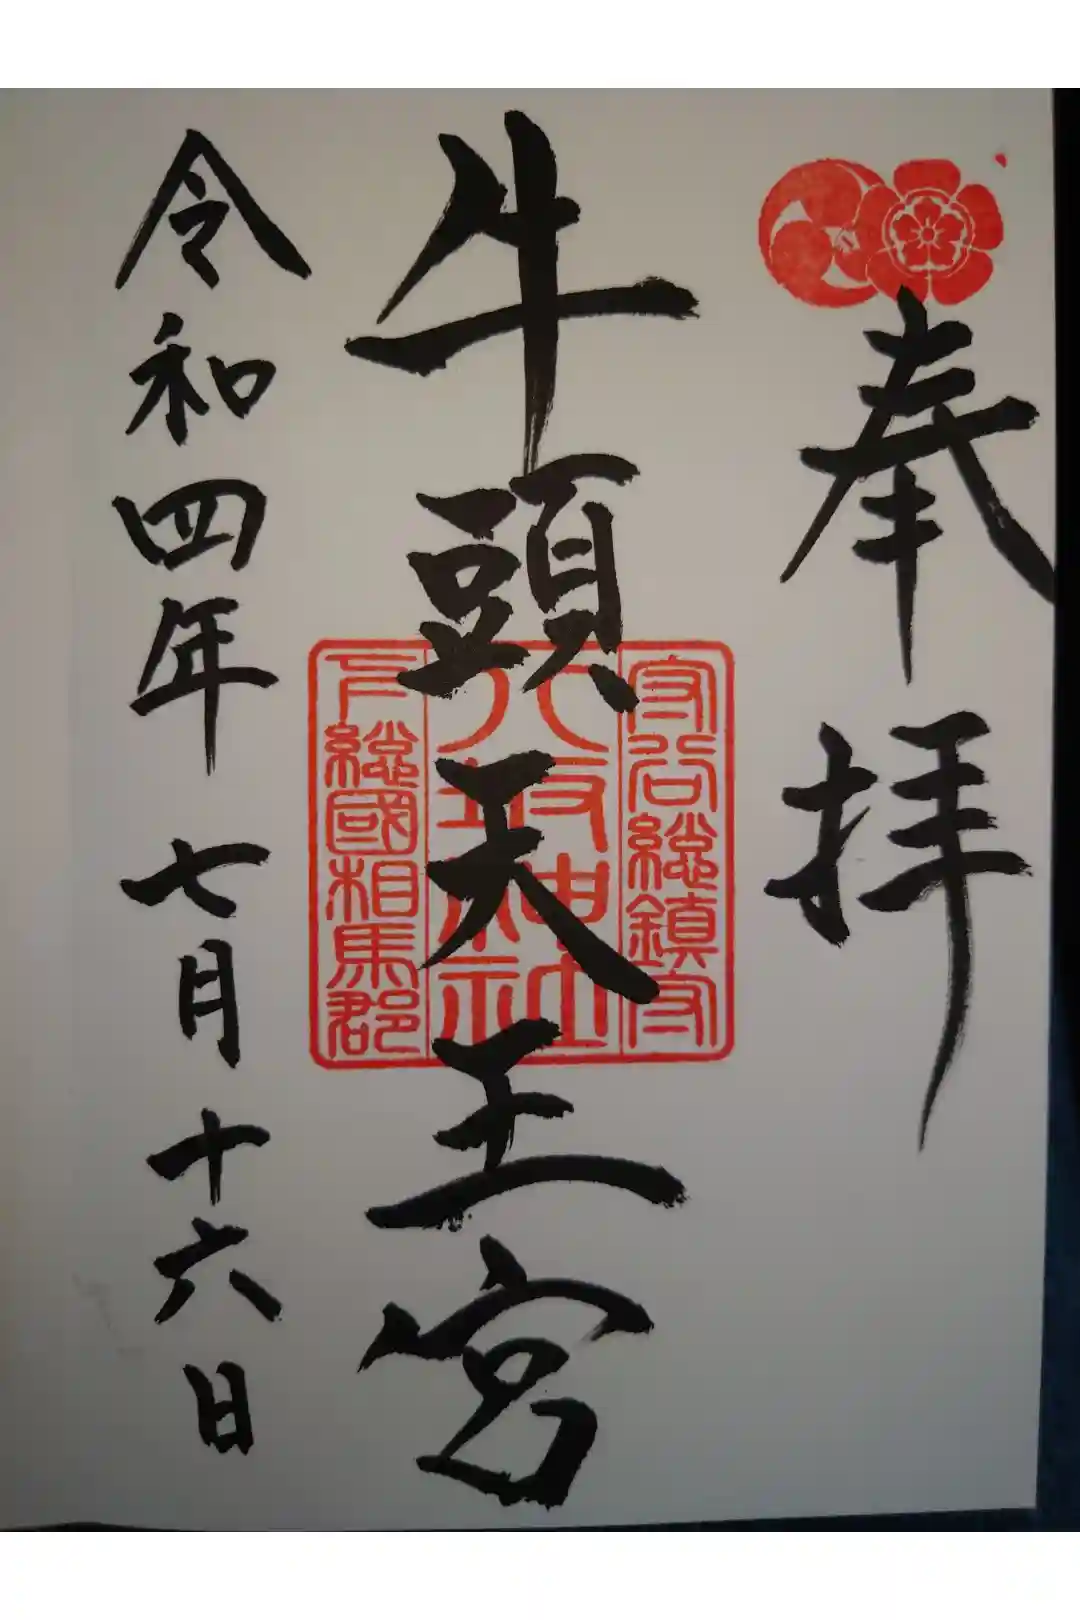 奉拝
守谷総鎮守
八坂神社
下総國相馬郡
牛頭天王宮
令和四年七月十六日